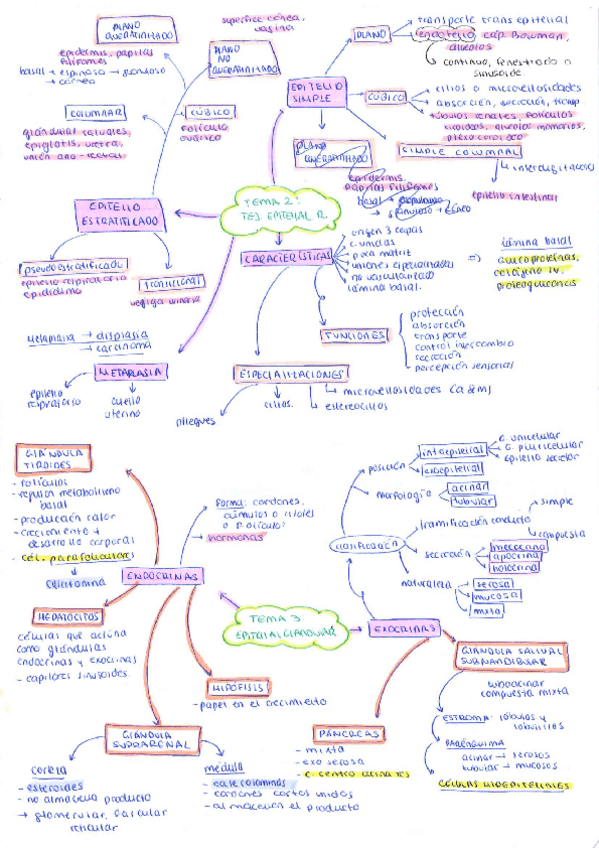 PLANO
QUERATINIZADO
epidermis, papilas
filiformes
basal → espinoso → granuloso
→ córneo
superficie córnea,
vagina
PLANO
NO
QUERATINIZADO
COLUMNAR
glándulas salivales,
epiglotis, uretra,
unión ano-rectal
CÚBICO
folículo
ovárico
EPITELIO
ESTRATIFICADO
pseudoestratificado
epitelio respiratorio
epidídimo
transicional
vejiga urinaria
metaplasia → displasia
→ carcinoma
METAPLASIA
epitelio
respiratorio
cuello
uterino
TEMA 2:
TEJ. EPITELIAL R.
EPITELIO
SIMPLE
PLANO
transporte transepitelial
endotelio, cap. Bowman,
alveolos
continuo, fenestrado o
sinusoide
CÚBICO
cilios o microvellosidades
absorción, secreción, transp
túbulos renales, folículos
tiroideos, alveolos mamarios,
plexo coroideo
SIMPLE COLUMNAL
interdigitaciones
epitelio intestinal
PLANO
QUERATINIZADO
epidermis
papilas filiformes
CARACTERÍSTICAS
origen 3 capas
c. unidas
poca matriz
uniones especializadas
no vascularizado
lámina basal.
⇒ lámina basal
glucoproteínas,
colágeno IV,
proteoglucanos
FUNCIONES
protección
absorción
transporte
control intercambio
secreción
percepción sensorial
ESPECIALIZACIONES
pliegues
cilios.
microvellosidades
estereocilios
GLÁNDULA
TIROIDES
- folículos
- regulan metabolismo
basal
- producción calor
- crecimiento +
desarrollo corporal
- cél. parafoliculares
calcitonina
ENDOCRINAS
forma: cordones,
cúmulos o islotes
o folículos
hormonas
HEPATOCITOS
células que actúan
como glándulas
endocrinas y exocrinas
- capilares sinusoides.
HIPÓFISIS
- papel en el crecimiento
GLÁNDULA
SUPRARENAL
corteza
- esteroides
- no almacena producto
→ glomerular, fascicular
reticular
médula
- catecolaminas
- cordones cortos unidos
- almacenan el producto
TEMA 3:
EPITELIAL GLANDULAR
EXOCRINAS
clasificación
posición
intraepitelial
exoepitelial
G. unicelular
G. pluricelular
Epitelio secretor
morfología
acinar
tubular
ramificación conducto
simple
compuesta
secreción
merocrina
apocrina
holocrina
naturaleza
serosa
mucosa
mixta
PÁNCREAS
- mixta
- exo serosa
- c. centroacinares
GLÁNDULA SALIVAL
SUBMANDIBULAR
tuboacinar
compuesta mixta
ESTROMA: lóbulos y
lobulillos
PARÉNQUIMA
acinar → serosos
tubular → mucosos
CÉLULAS MIOEPITELIALES